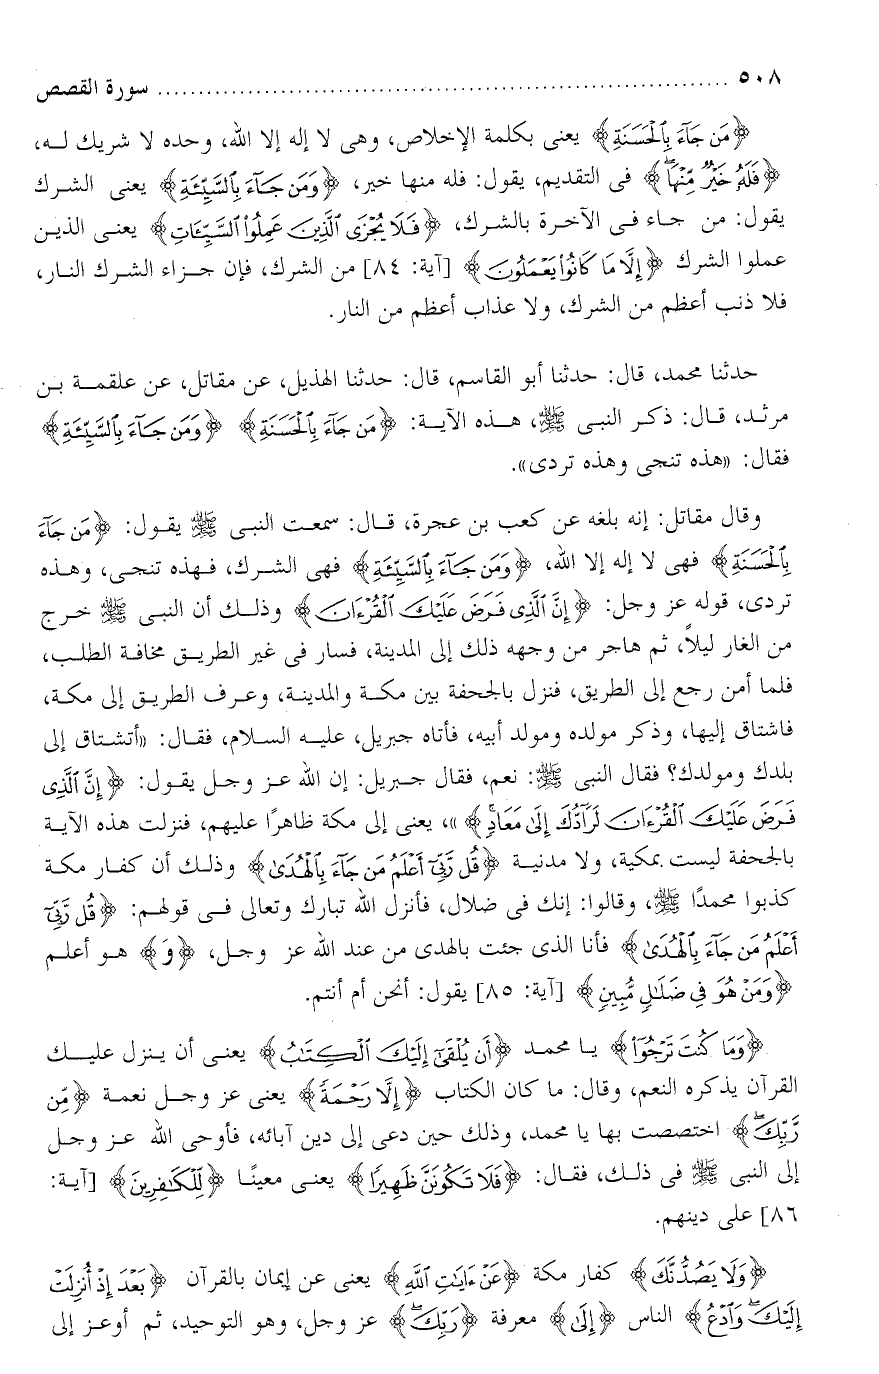 ٥٠٨ ........................................................................ سورة القصص
﴿مَن جَآءَ بِالْحَسَنَةِ﴾ يعنى بكلمة الإخلاص، وهى لا إله إلا الله، وحده لا شريك لـه،
﴿فَلَهُ خَيْرٌ مِّنْهَا ۖ﴾ فى التقديم، يقول: فله منها خير، ﴿وَمَن جَآءَ بِالسَّيِّئَةِ﴾ يعنى الشرك
يقول: من جاء فى الآخرة بالشرك، ﴿فَلَا يُجْزَى الَّذِينَ عَمِلُوا۟ السَّيِّـَٔاتِ﴾ يعنى الذين
عملوا الشرك ﴿إِلَّا مَا كَانُوا۟ يَعْمَلُونَ﴾ [آية: ٨٤] من الشرك، فإن جزاء الشرك النار،
فلا ذنب أعظم من الشرك، ولا عذاب أعظم من النار.
حدثنا محمد، قال: حدثنا أبو القاسم، قال: حدثنا الهذيل، عن مقاتل، عن علقمة بن
مرثد، قال: ذكر النبى ﷺ، هذه الآية: ﴿مَن جَآءَ بِالْحَسَنَةِ﴾ ﴿وَمَن جَآءَ بِالسَّيِّئَةِ﴾
فقال: «هذه تنجى وهذه تردى».
وقال مقاتل: إنه بلغه عن كعب بن عجرة، قال: سمعت النبى ﷺ يقول: ﴿مَن جَآءَ
بِالْحَسَنَةِ﴾ فهى لا إله إلا الله، ﴿وَمَن جَآءَ بِالسَّيِّئَةِ﴾ فهى الشرك، فهذه تنجى، وهذه
تردى، قوله عز وجل: ﴿إِنَّ الَّذِى فَرَضَ عَلَيْكَ الْقُرْءَانَ﴾ وذلك أن النبى ﷺ خرج
من الغار ليلاً، ثم هاجر من وجهه ذلك إلى المدينة، فسار فى غير الطريق مخافة الطلب،
فلما أمن رجع إلى الطريق، فنزل بالجحفة بين مكة والمدينة، وعرف الطريق إلى مكة،
فاشتاق إليها، وذكر مولده ومولد أبيه، فأتاه جبريل، عليه السلام، فقال: «أتشتاق إلى
بلدك ومولدك؟ فقال النبى ﷺ: نعم، فقال جبريل: إن الله عز وجل يقول: ﴿إِنَّ الَّذِى
فَرَضَ عَلَيْكَ الْقُرْءَانَ لَرَآدُّكَ إِلَىٰ مَعَادٍ ۚ﴾»، يعنى إلى مكة ظاهرًا عليهم، فنزلت هذه الآية
بالجحفة ليست بمكية، ولا مدنية ﴿قُل رَّبِّىٓ أَعْلَمُ مَن جَآءَ بِالْهُدَىٰ﴾ وذلك أن كفار مكة
كذبوا محمدًا ﷺ، وقالوا: إنك فى ضلال، فأنزل الله تبارك وتعالى فى قولهم: ﴿قُل رَّبِّىٓ
أَعْلَمُ مَن جَآءَ بِالْهُدَىٰ﴾ فأنا الذى جئت بالهدى من عند الله عز وجل، ﴿وَ﴾ هو أعلم
﴿وَمَنْ هُوَ فِى ضَلَٰلٍ مُّبِينٍ﴾ [آية: ٨٥] يقول: أنحن أم أنتم.
﴿وَمَا كُنتَ تَرْجُوٓا۟﴾ يا محمد ﴿أَن يُلْقَىٰٓ إِلَيْكَ الْكِتَٰبُ﴾ يعنى أن ينزل عليك
القرآن يذكره النعم، وقال: ما كان الكتاب ﴿إِلَّا رَحْمَةً﴾ يعنى عز وجل نعمة ﴿مِّن
رَّبِّكَ ۖ﴾ اختصصت بها يا محمد، وذلك حين دعى إلى دين آبائه، فأوحى الله عز وجل
إلى النبى ﷺ فى ذلك، فقال: ﴿فَلَا تَكُونَنَّ ظَهِيرًا﴾ يعنى معينًا ﴿لِّلْكَٰفِرِينَ﴾ [آية:
٨٦] على دينهم.
﴿وَلَا يَصُدُّنَّكَ﴾ كفار مكة ﴿عَنْ ءَايَٰتِ اللَّهِ﴾ يعنى عن إيمان بالقرآن ﴿بَعْدَ إِذْ أُنزِلَتْ
إِلَيْكَ ۖ وَادْعُ﴾ الناس ﴿إِلَىٰ﴾ معرفة ﴿رَبِّكَ ۖ﴾ عز وجل، وهو التوحيد، ثم أوعز إلى